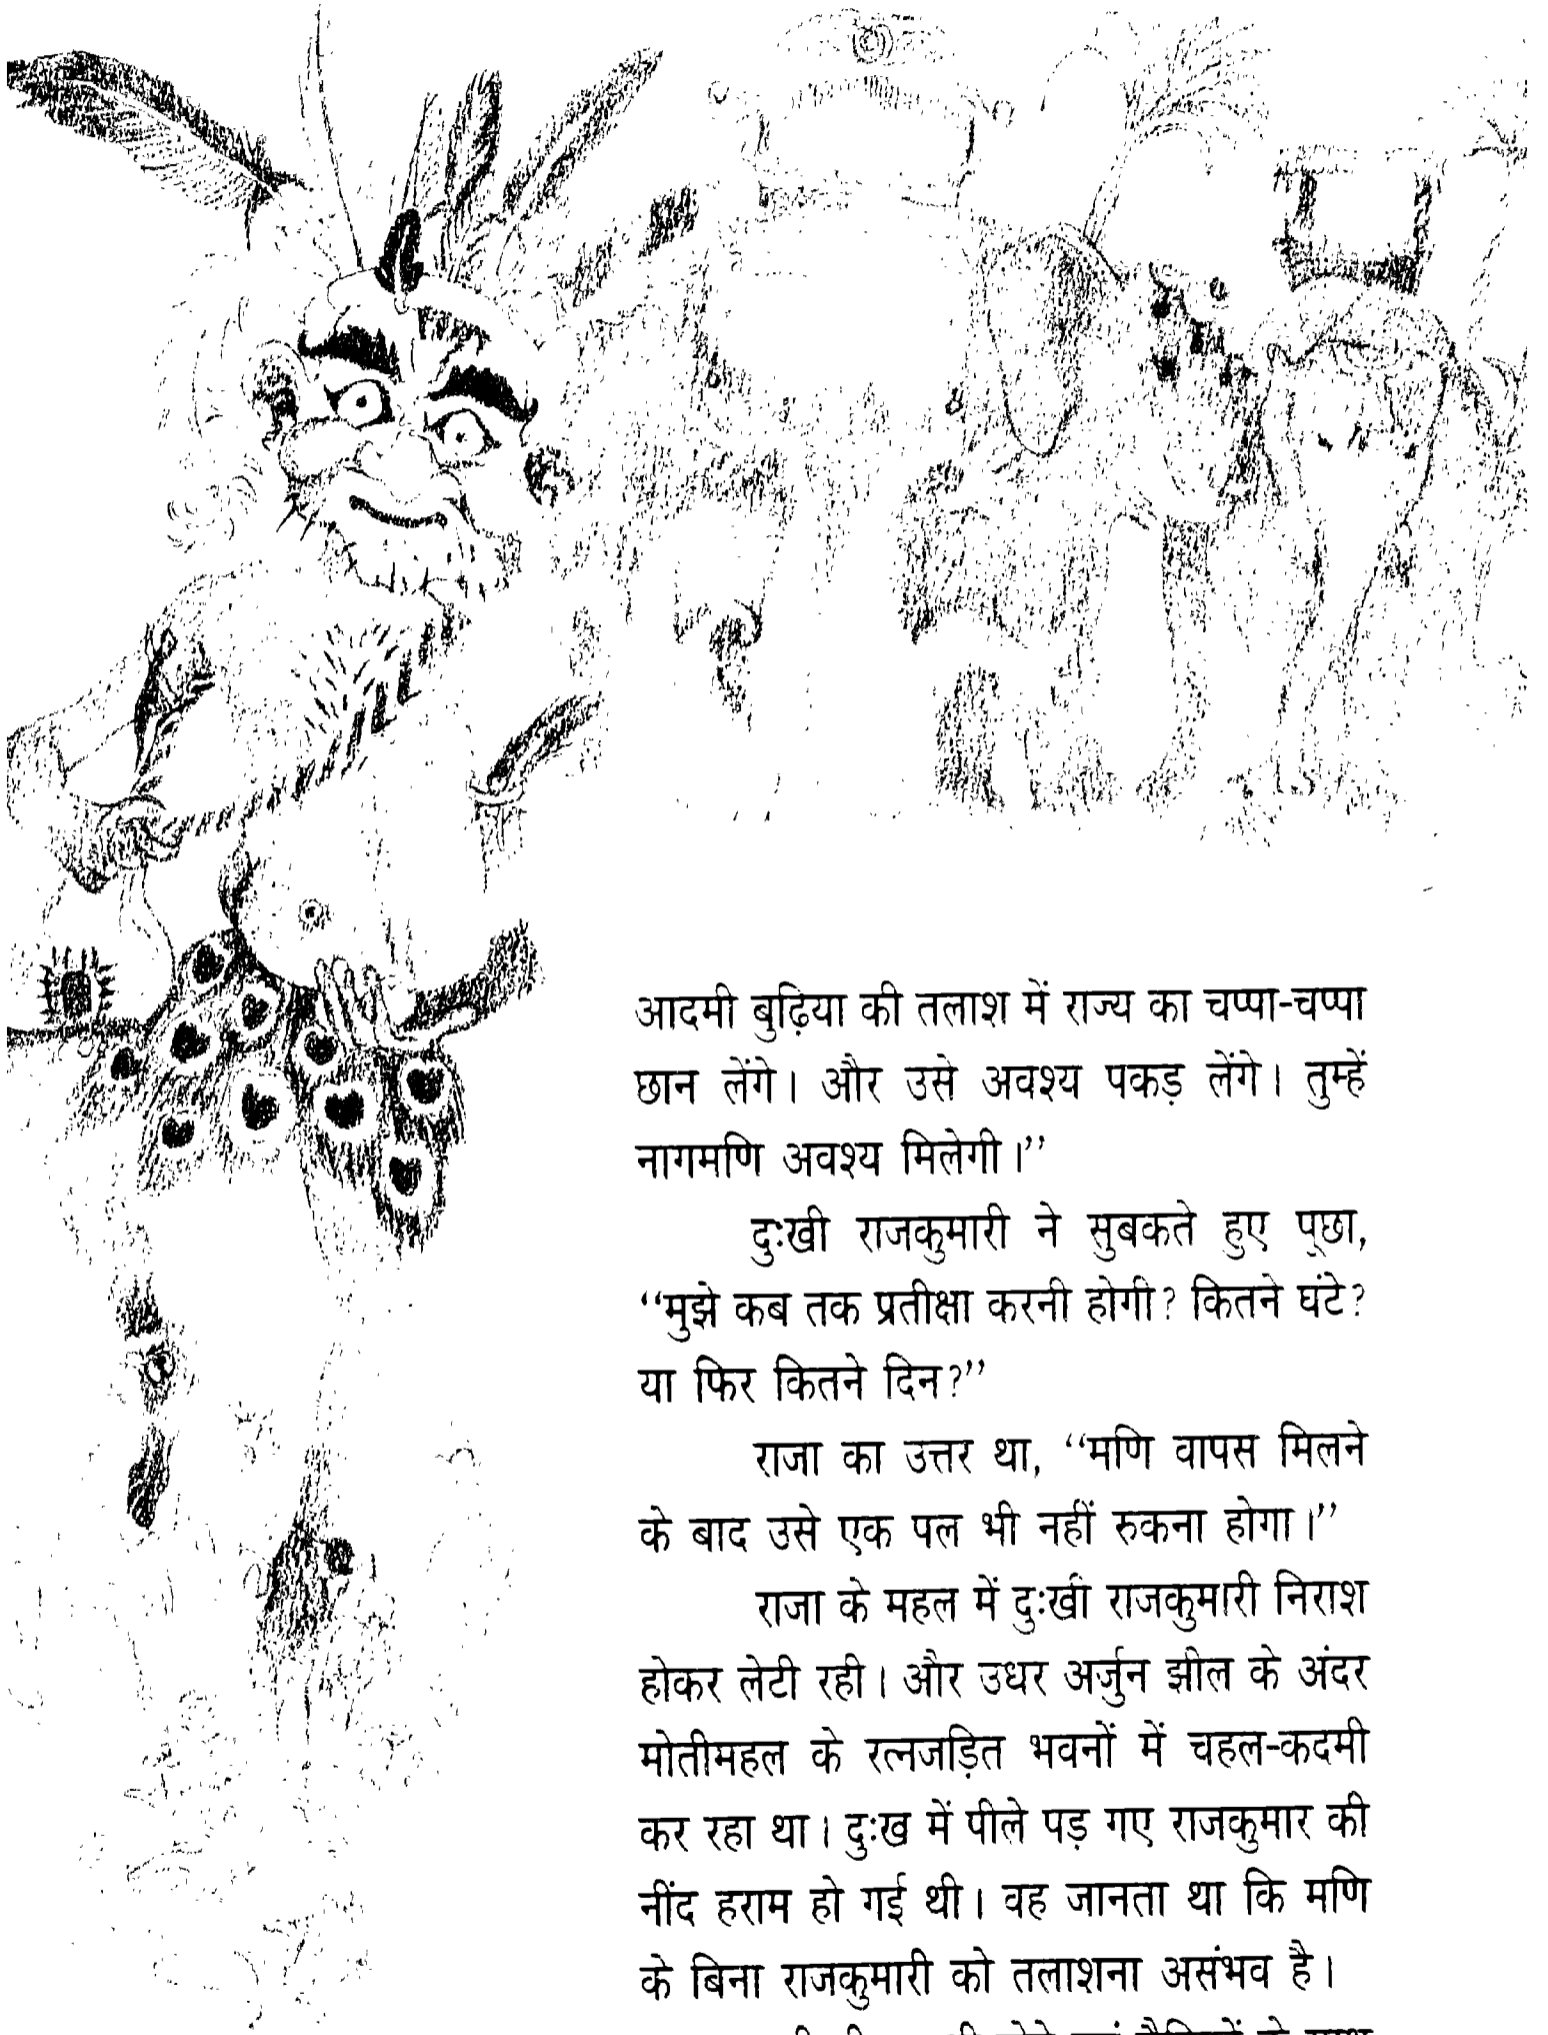 आदमी बुढ़िया की तलाश में राज्य का चप्पा-चप्पा
छान लेंगे। और उसे अवश्य पकड़ लेंगे। तुम्हें
नागमणि अवश्य मिलेगी।’’
दुःखी राजकुमारी ने सुबकते हुए पूछा,
‘‘मुझे कब तक प्रतीक्षा करनी होगी? कितने घंटे?
या फिर कितने दिन?’’
राजा का उत्तर था, ‘‘मणि वापस मिलने
के बाद उसे एक पल भी नहीं रुकना होगा।’’
राजा के महल में दुःखी राजकुमारी निराश
होकर लेटी रही। और उधर अर्जुन झील के अंदर
मोतीमहल के रत्नजड़ित भवनों में चहल-कदमी
कर रहा था। दुःख में पीले पड़ गए राजकुमार की
नींद हराम हो गई थी। वह जानता था कि मणि
के बिना राजकुमारी को तलाशना असंभव है।